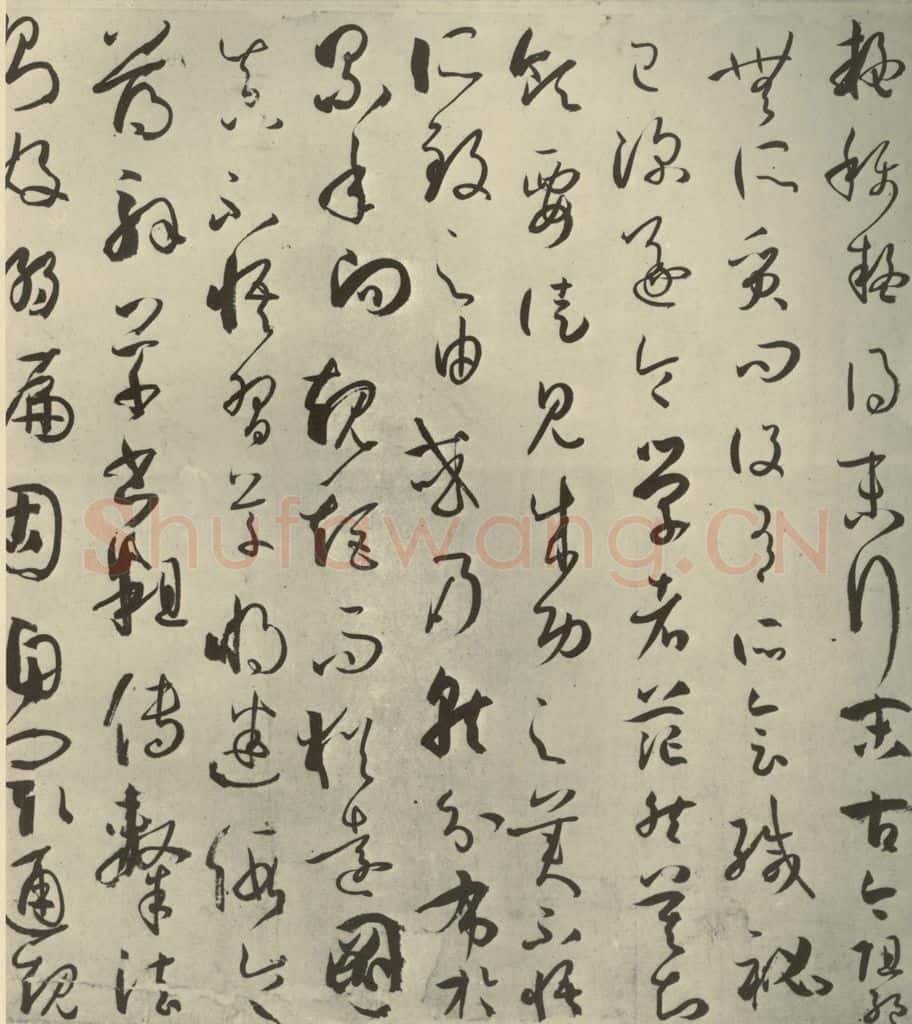 疑稱疑得末行末古今阻絕
無所質問設有所會緘秘
已深遂令學者茫然莫知
領要徒見成功之美不悟
所致之由或乃就分布於
累年向規矩而猶遠圖
真不悟習草將迷假令
薄解草書粗傳隸法
則好溺偏固自閡通規
Shufawang.CN